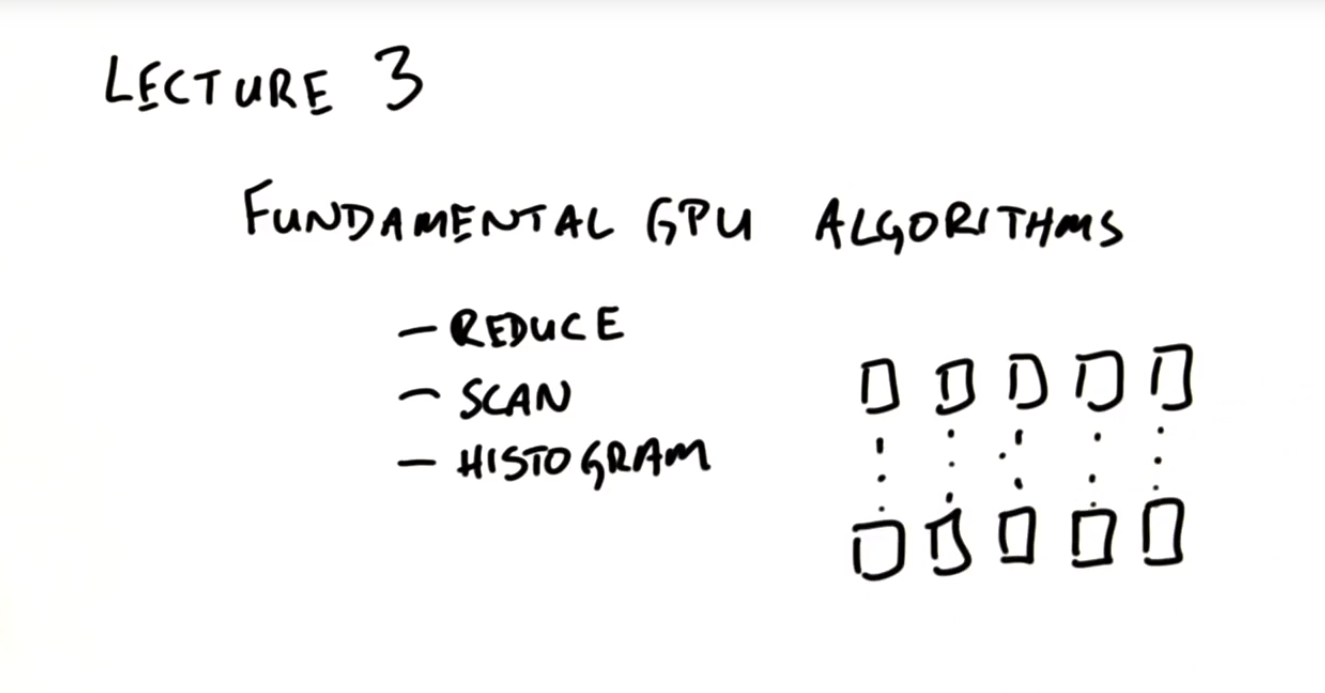 LECTURE 3
FUNDAMENTAL GPU ALGORITHMS
- REDUCE
- SCAN
- HISTOGRAM